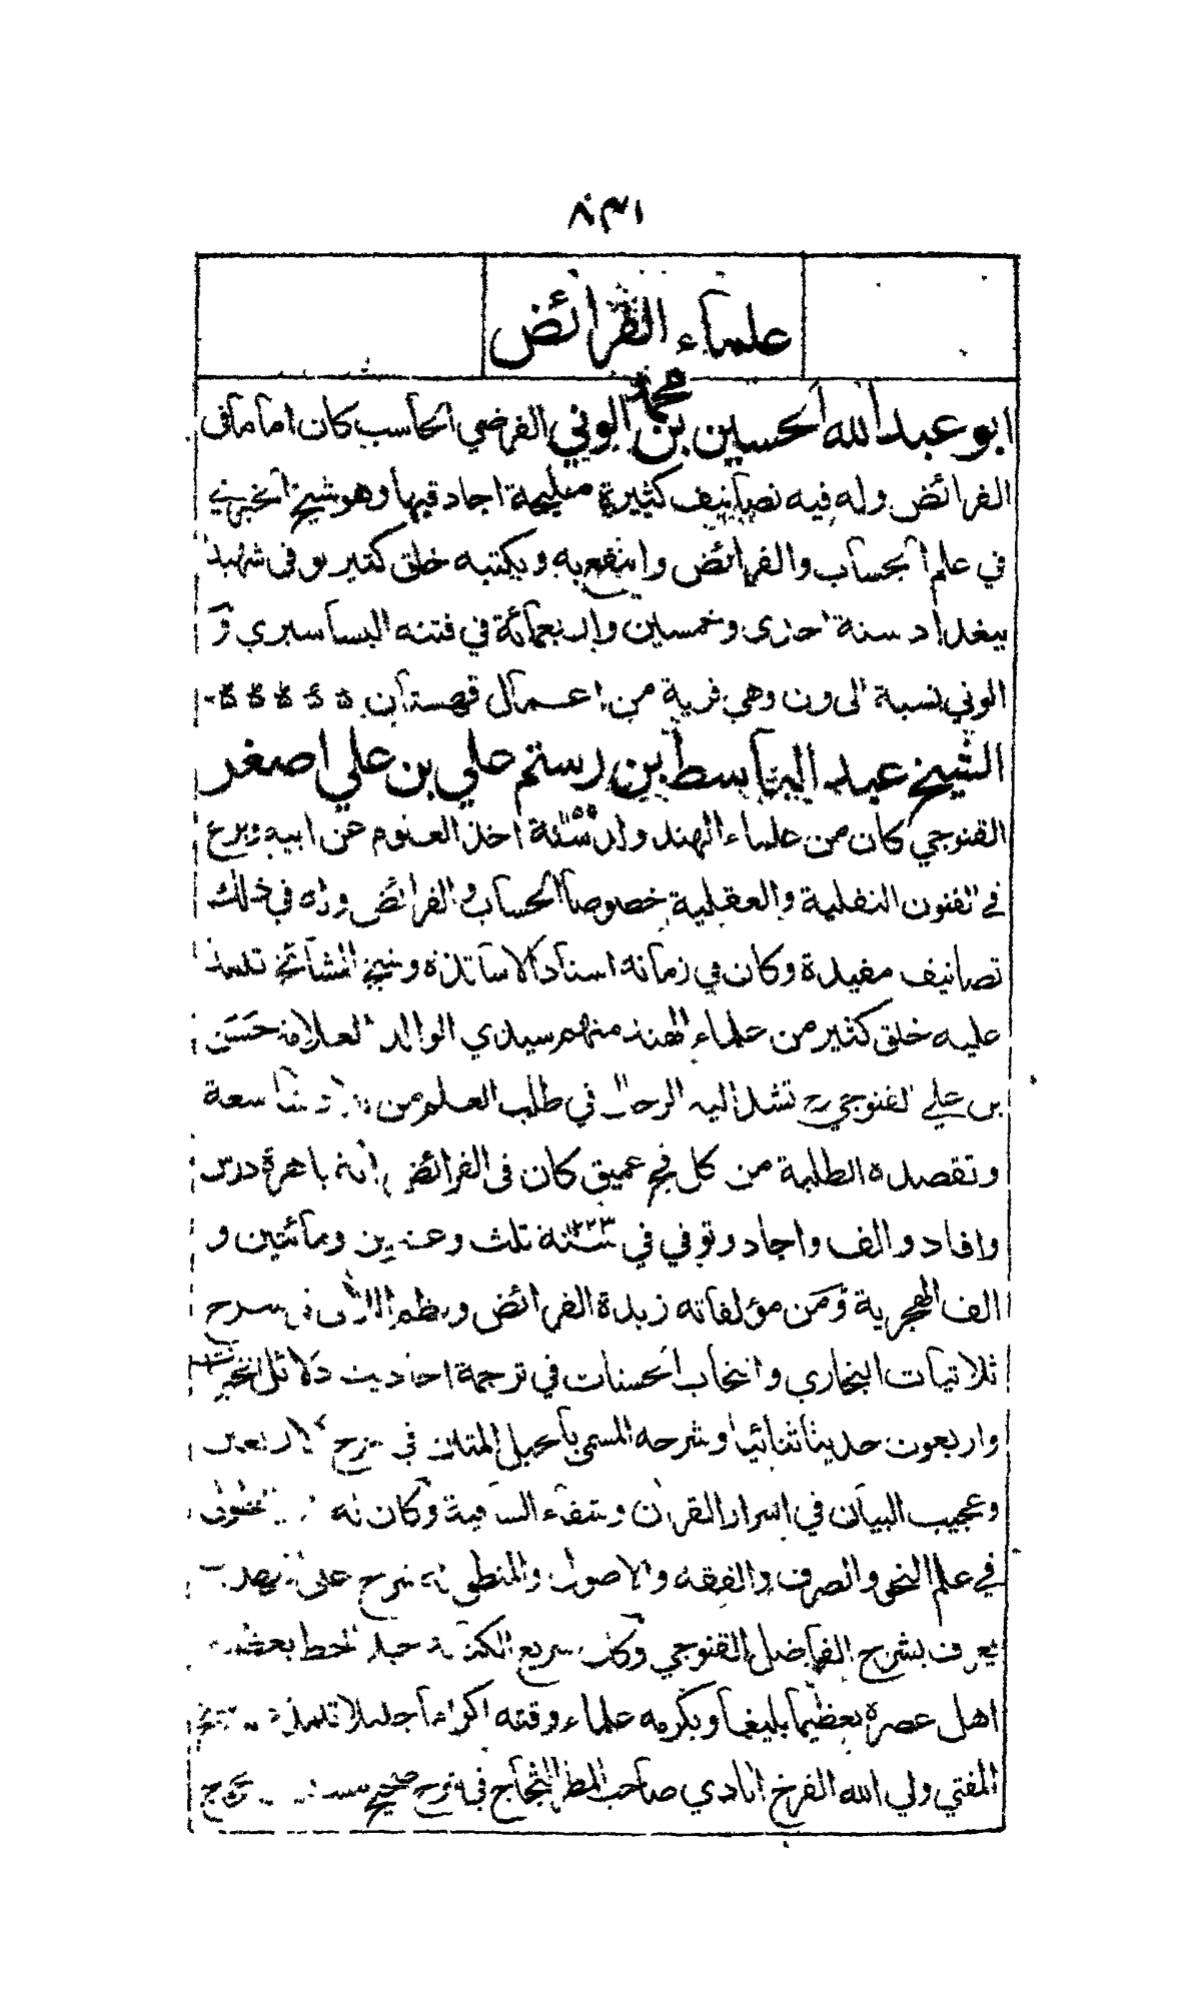 ٨٣١
علماء الفرائض
ابو عبدالله الحسين بن محمد الوني الفرضي الحاسب كان اماما في
الفرائض وله فيه تصانيف كثيرة مليحة اجاد فيها وهو شيخ الخبري
في علم الحساب والفرائض وانتفع به وبكتبه خلق كثير توفي شهيدا
ببغداد سنة احدى وخمسين واربعمائة في فتنة البساسيري و
الوني نسبة الى ون وهي قرية من اعمال قهستان
الشيخ عبد الباسط بن رستم علي بن علي اصغر
القنوجي كان من علماء الهند ولد سنة اخذ العلوم عن ابيه وبرع
في الفنون النقلية والعقلية خصوصا الحساب والفرائض وله في ذلك
تصانيف مفيدة وكان في زمانه استاد الاساتذة وشيخ المشائخ تلمذ
عليه خلق كثير من علماء الهند منهم سيدي الوالد العلامة حسن
بن علي القنوجي رح تشد اليه الرحال في طلب العلم من شاسعة
وتقصده الطلبة من كل فج عميق كان في الفرائض اية باهرة درس
وافاد والف واجاد وتوفي في سنة ١٢٢٣ ثلث وعشرين ومائتين و
الف الهجرية ومن مؤلفاته زبدة الفرائض ونظم اللآلي في شرح
ثلاثيات البخاري وانتخاب الحسنات في ترجمة احاديث دلائل الخيرات
واربعون حديثا ثنائيا وشرحه المسمى بالحبل المتين في شرح الاربعين
وعجيب البيان في اسرار القران وشفاء الشافية وكان له
في علم النحو والصرف والفقه والاصول والمنطق له شرح على تهذيب
يعرف بشرح الفاضل القنوجي وكان سريع الكتابة جيد الخط يعظمه
اهل عصره تعظيما بليغا ويكرمه علماء وقته اكراما جليلا تلمذ
المفتي ولي الله الفرخ ابادي صاحب المطر الثجاج في شرح صحيح مسلم